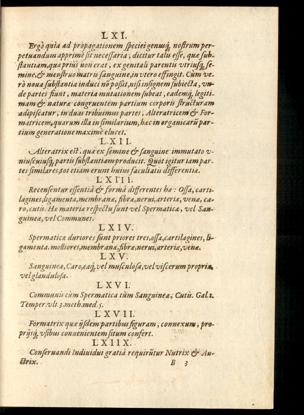 LXI.
Ergò quia ad propagationem speciei genuiq́; nostrum per-
petuandum apprimè sit necessaria, dicitur talis esse, quæ sub-
stantiam, quæ prius non erat, ex genitali parentis vtriusq́; se-
mine, & menstruo matris sanguine, in vtero effingit. Cum ve-
rò noua substantia induci nō possit, nisi insignem subiecta, vn-
de partes fiunt, materia mutationem subeat, eademq́; legiti-
mam & naturæ congruentem partium corporis structuram
adipiscatur, in duas tribuimus partes, Alteratricem & For-
matricem, quarum illa in similarium, hæc in organicarū par-
tium generatione maximè elucet.
LXII.
Alteratrix est, quæ ex semine & sanguine immutato v-
niuscuiusq́; partis substantiam producit. Quot igitur sunt par-
tes similares, tot etiam erunt huius facultatis differentiæ.
LXIII.
Recensentur essentiâ & formâ differentes hæ: Ossa, carti-
lagines, ligamenta, membrana, fibra, neruus, arteria, vena, ca-
ro, cutis. Hæ materiæ respectu sunt vel Spermaticæ, vel San-
guineæ, vel Communes.
LXIV.
Spermaticæ duriores sunt priores tres, ossa, cartilagines, li-
gamenta. molliores, membrana, fibra, neruus, arteria, vena.
LXV.
Sanguinea, Caro, eaq́; vel musculosa, vel viscerum propria,
vel glandulosa.
LXVI.
Communis cùm Spermaticæ tùm Sanguineæ, Cutis. Gal. 2.
Temper. vlt. 3. meth. med. 5.
LXVII.
Formatrix quæ ijsdem partibus figuram, connexum, pro-
prijsq́; vsibus conuenientem situm confert.
LXIIX.
Conseruandi Indiuidui gratiâ requirūtur Nutrix & Au-
ctrix.
B 3